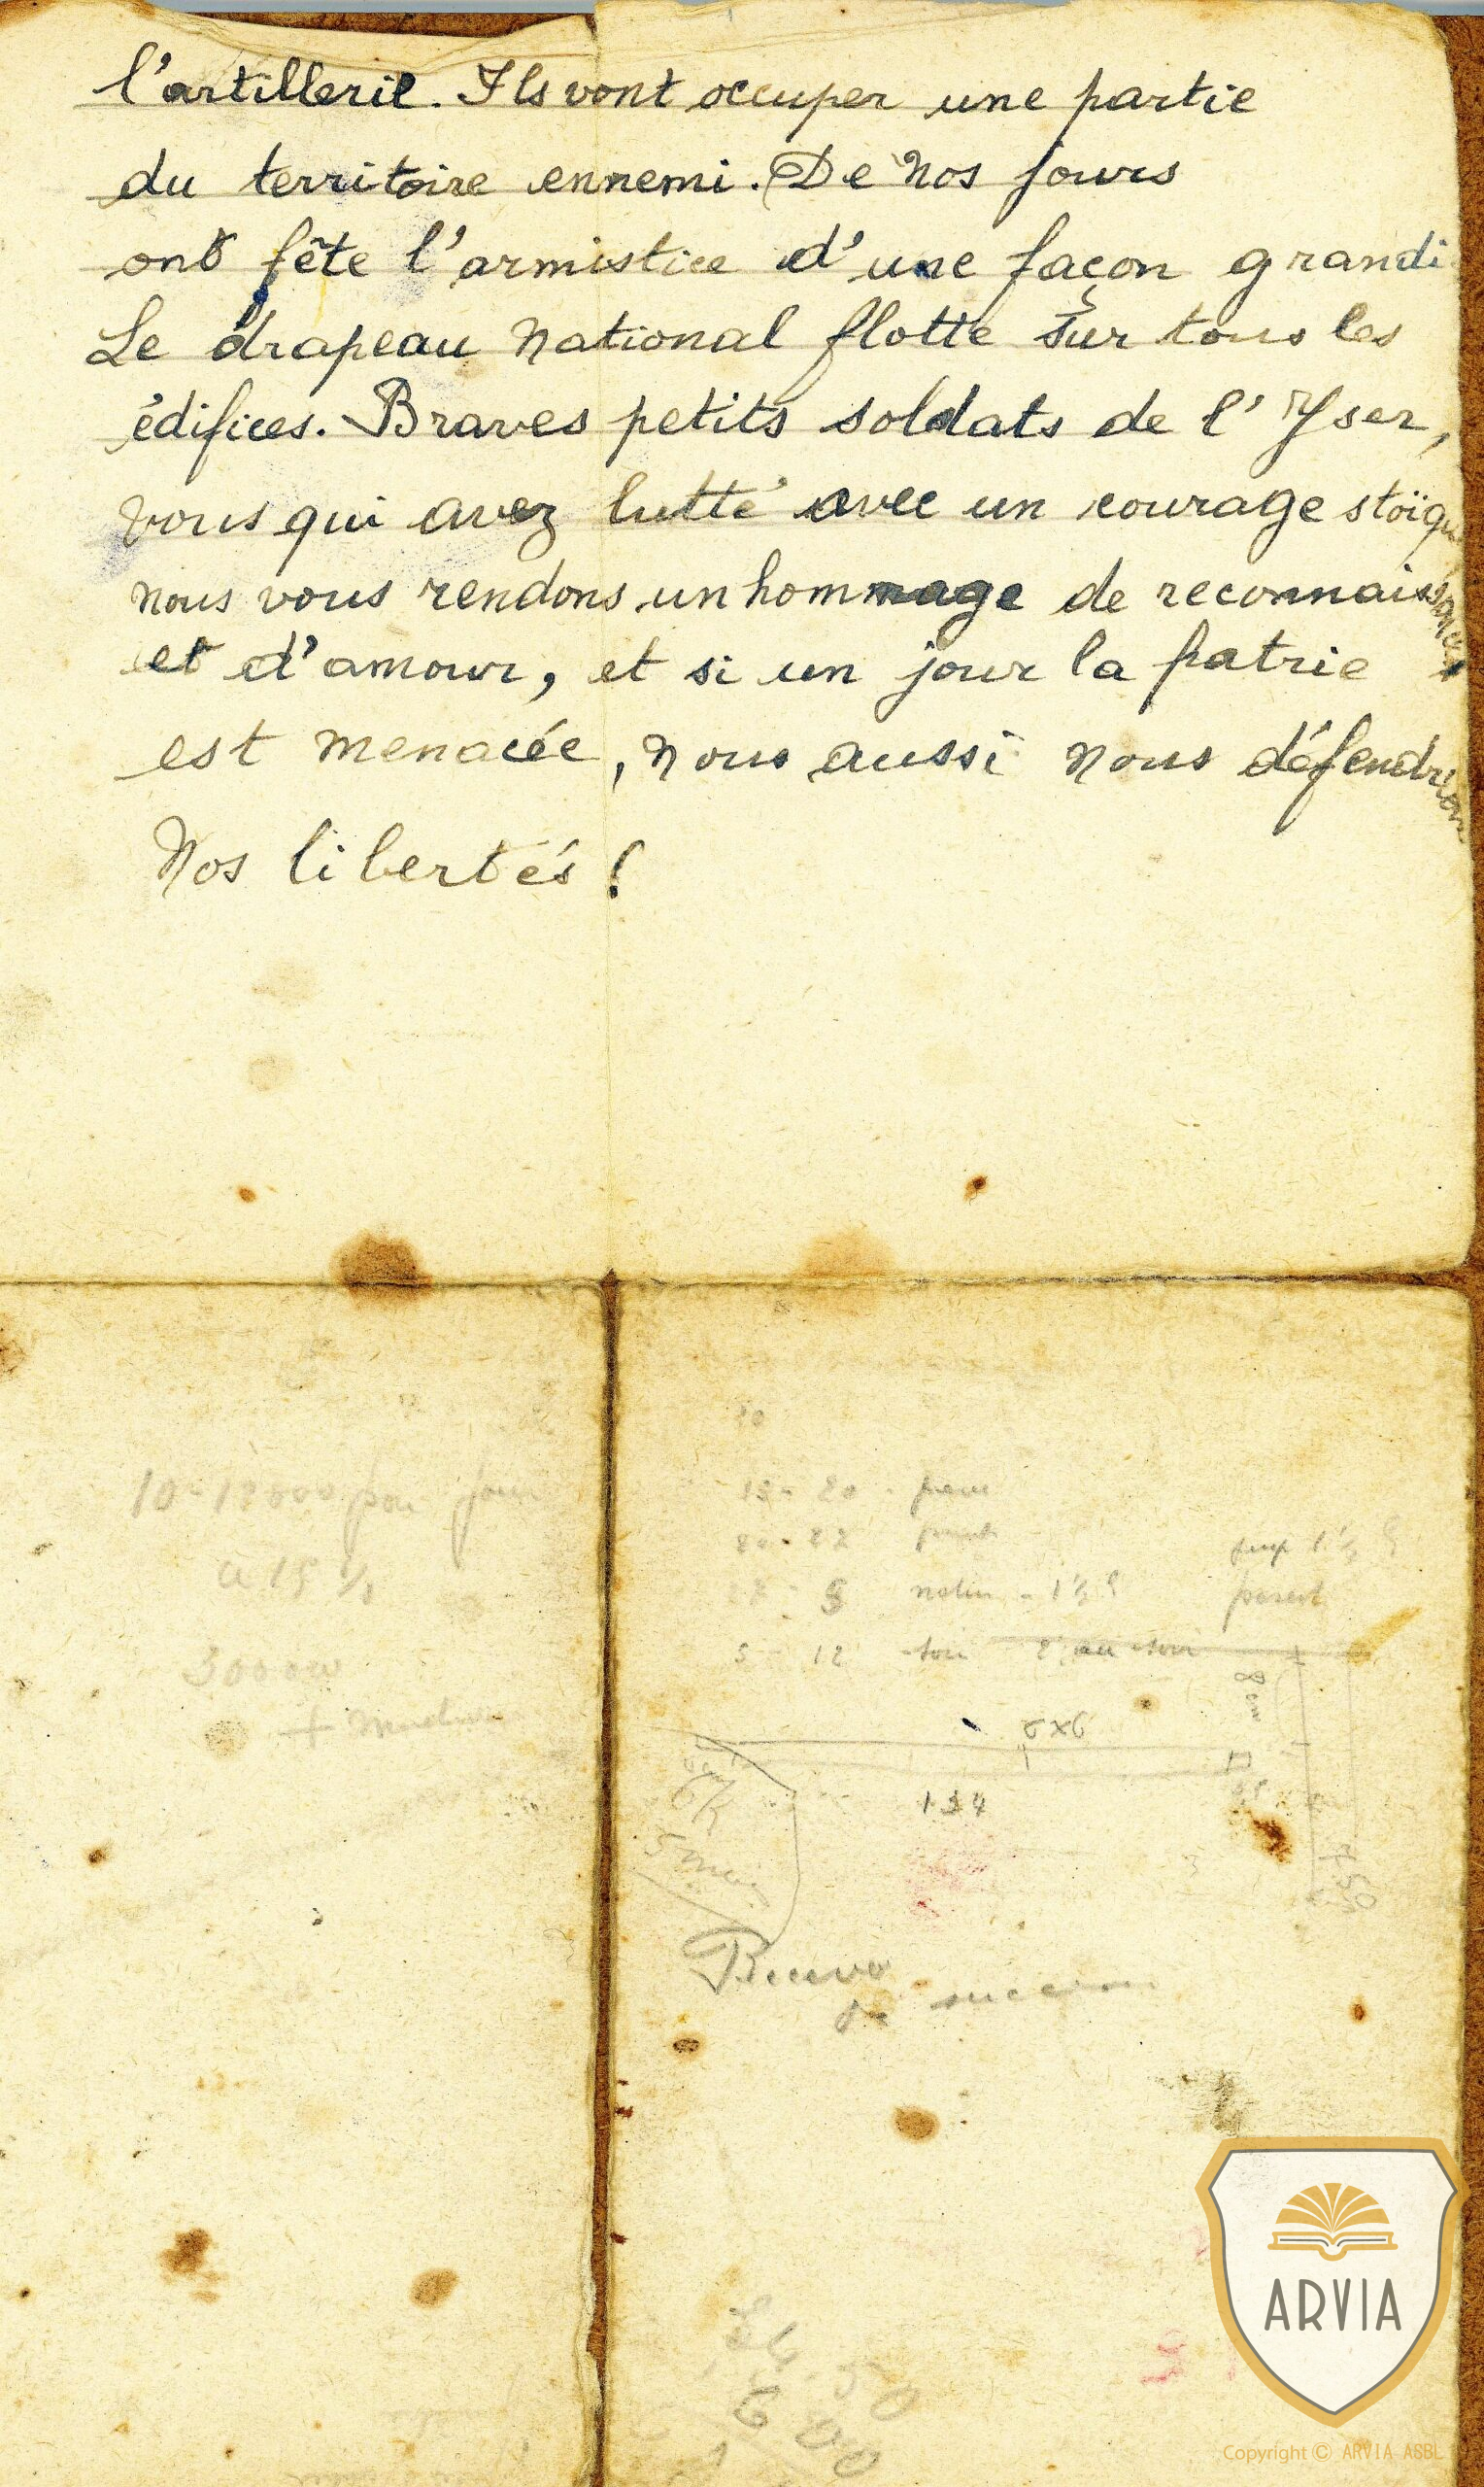 l'artillerie. Ils vont occuper une partie
du territoire ennemi. De nos jours
ont fête l'armistice d'une façon grandi
Le drapeau national flotte sur tous les
édifices. Braves petits soldats de l'Yser,
vous qui avez lutté avec un courage stoïqu
nous vous rendons un hommage de reconnaissance
et d'amour, et si un jour la patrie
est menacée, nous aussi nous défendrons
Nos libertés!
10-12000 par jour
a 15
30000
+
10
18-20 -
20-22
5 matin - 1½
5 - 12 - soir 2 au soir
8 m
6x6
134
6k
5 mai
7,50
24.50
6 00
ARVIA
Copyright © ARVIA ASBL